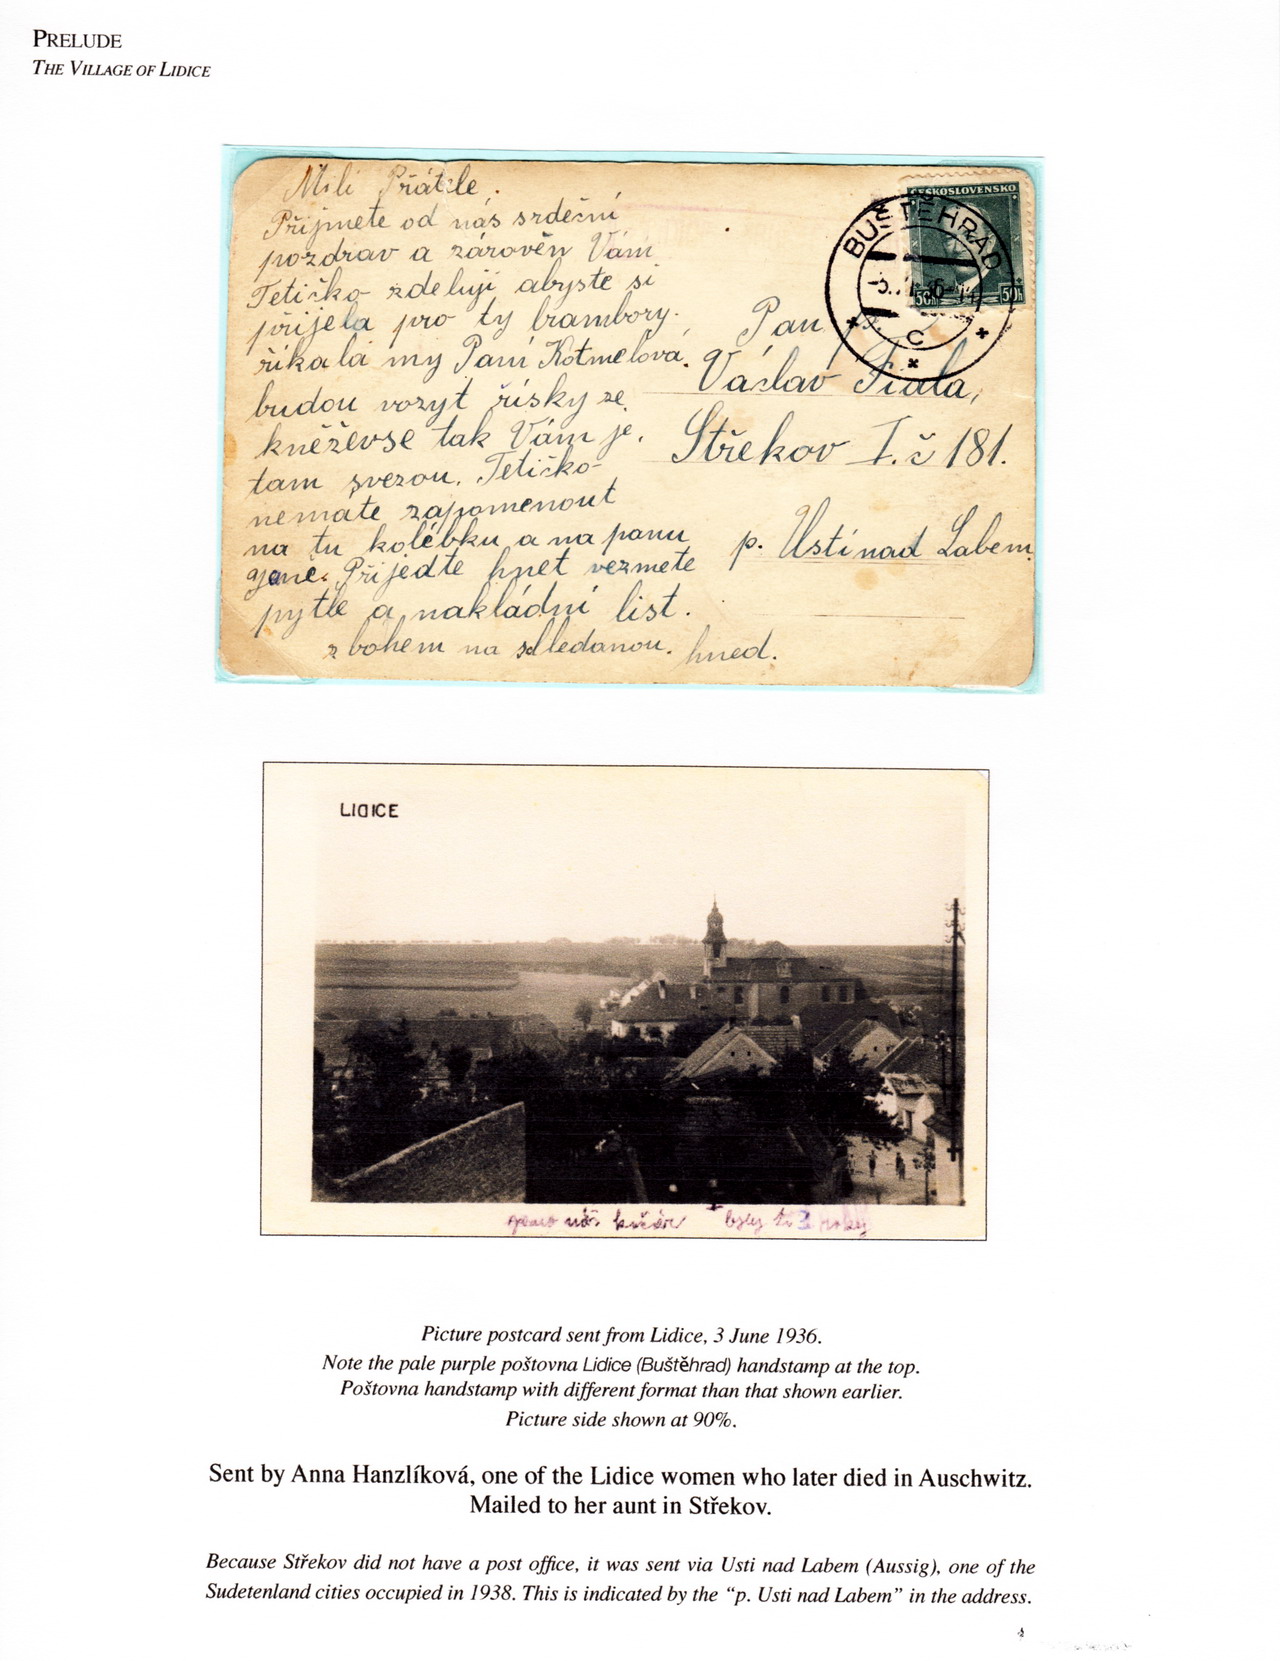 PRELUDE
THE VILLAGE OF LIDICE
Milí Přátele.
Přijmete od nás srdečni
pozdrav a zárověn Vám
Tetičko zdeluji abyste si
přijela pro ty brambory.
řikala my Paní Kotmelova.
budou vozyt řísky ze
kněževse tak Vám je.
tam svezou. Tetičko
nemáte zapomenout
na tu kolébku a na panu
Přijedte hnet vezmete
pytle a nakládní list.
z bohem na shledanou. hned.
ČESKOSLOVENSKO
50h 50h
BUŠTĚHRAD
C
Pan
Václav Fiala,
Střekov I. č 181.
p. Usti nad Labem
LIDICE
Picture postcard sent from Lidice, 3 June 1936.
Note the pale purple poštovna Lidice (Buštěhrad) handstamp at the top.
Poštovna handstamp with different format than that shown earlier.
Picture side shown at 90%.
Sent by Anna Hanzlíková, one of the Lidice women who later died in Auschwitz.
Mailed to her aunt in Střekov.
Because Střekov did not have a post office, it was sent via Usti nad Labem (Aussig), one of the
Sudetenland cities occupied in 1938. This is indicated by the “p. Usti nad Labem” in the address.